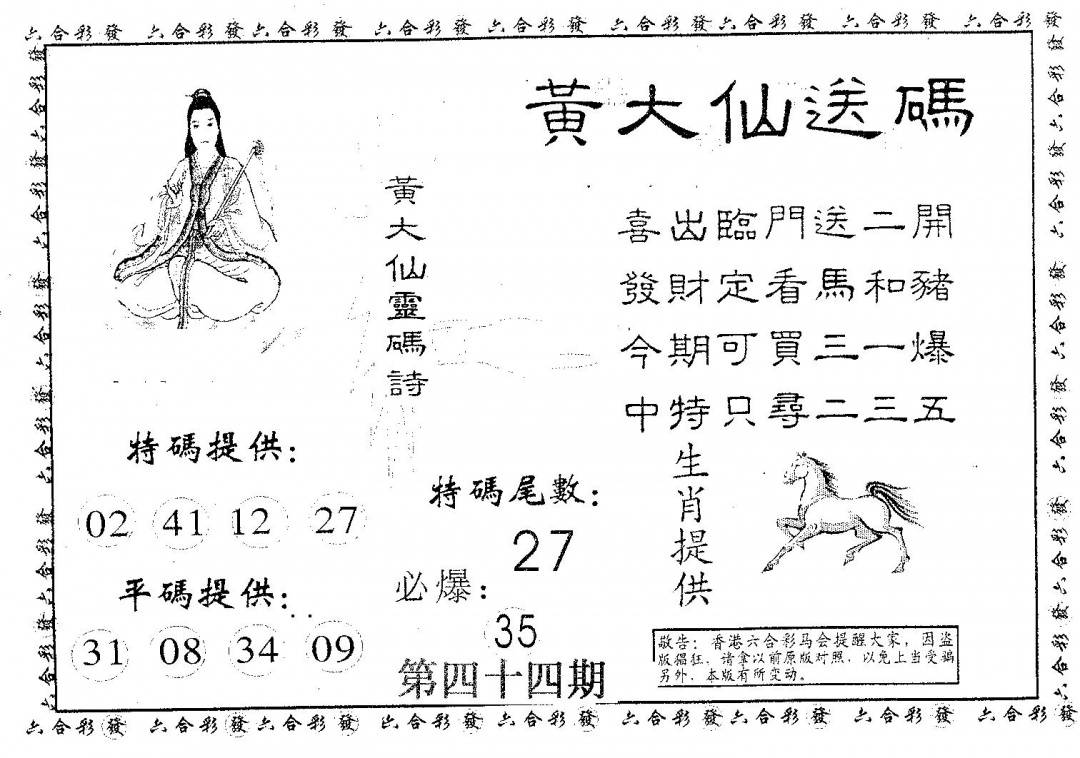 六合彩發 六合彩發六合彩發 六合彩發 六合彩發 六合彩發六合彩發 六合彩發 六合彩發
黃大仙送碼
黃大仙靈碼詩
喜出臨門送二開
發財定看馬和豬
今期可買三一爆
中特只尋二三五
特碼提供：
02 41 12 27
平碼提供：
31 08 34 09
特碼尾數：
27
必爆：
35
第四十四期
生肖提供
敬告：香港六合彩马会提醒大家，因盗
版猖狂，请拿以前原版对照，以免上当受骗
另外，本版有所变动。
六合彩發 六合彩發六合彩發 六合彩發 六合彩發 六合彩發六合彩發 六合彩發 六合彩發